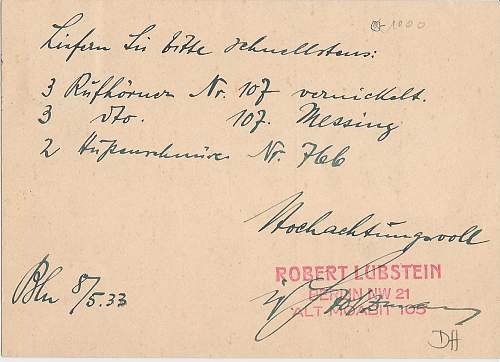 1000
Liefern Sie bitte schnellstens:
3 Rufhörner Nr. 107 vernickelt.
3 dto. 107. Messing
2 Hupenschnüre Nr. 766
Hochachtungsvoll
ROBERT LUBSTEIN
BERLIN NW 21
ALT-MOABIT 105
Bln 8/5.33
DH